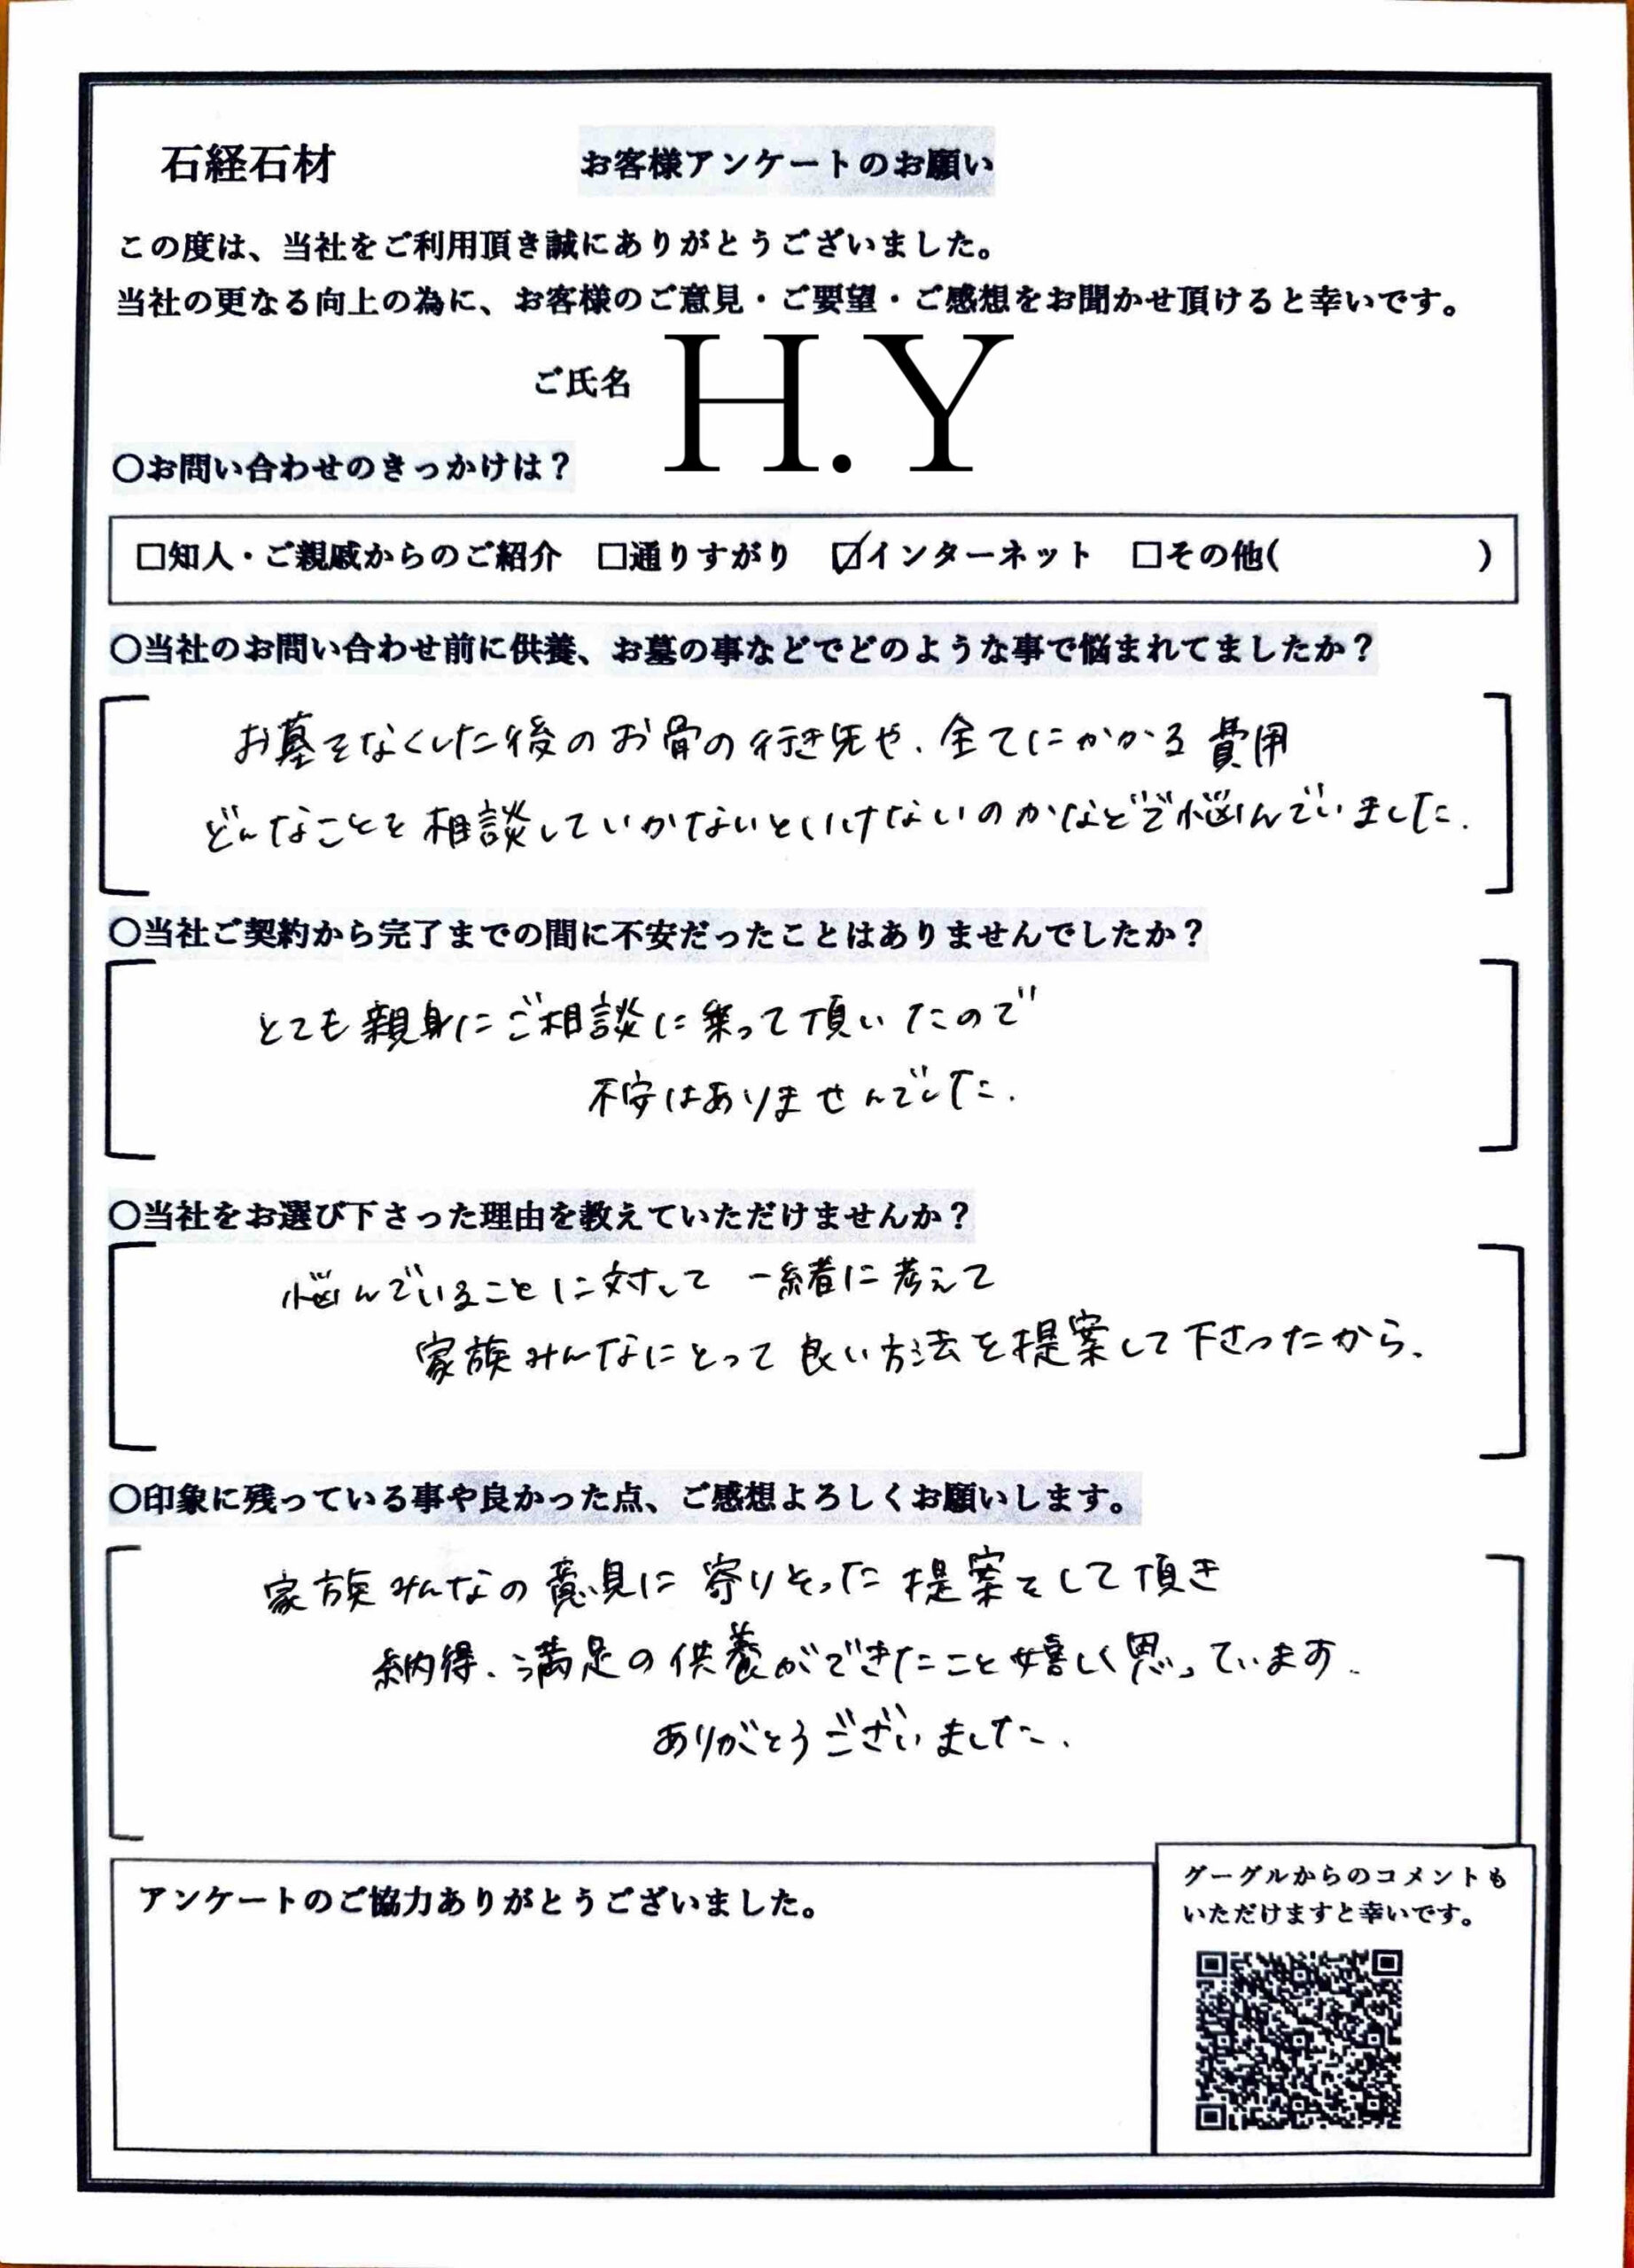 石経石材 お客様アンケートのお願い
この度は、当社をご利用頂き誠にありがとうございました。
当社の更なる向上の為に、お客様のご意見・ご要望・ご感想をお聞かせ頂けると幸いです。
ご氏名 H.Y
〇お問い合わせのきっかけは？
□知人・ご親戚からのご紹介 □通りすがり ☑インターネット □その他( )
〇当社のお問い合わせ前に供養、お墓の事などでどのような事で悩まれてましたか？
お墓をなくした後のお骨の行き先や、全てにかかる費用
どんなことを相談していかないといけないのかなどで悩んでいました.
〇当社ご契約から完了までの間に不安だったことはありませんでしたか？
とても親身にご相談に乗って頂いたので
不安はありませんでした.
〇当社をお選び下さった理由を教えていただけませんか？
悩んでいることに対して 一緒に考えて
家族みんなにとって良い方法を提案して下さったから、
〇印象に残っている事や良かった点、ご感想よろしくお願いします。
家族みんなの意見に寄りそった提案をして頂き
納得、満足の供養ができたこと嬉しく思っています.
ありがとうございました、
アンケートのご協力ありがとうございました。
グーグルからのコメントも
いただけますと幸いです。